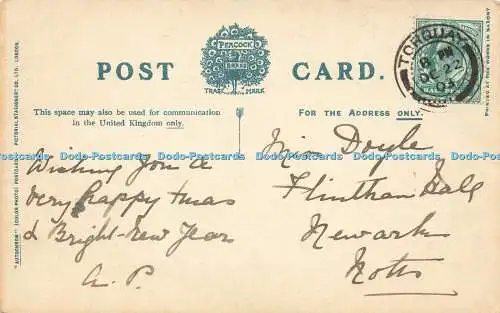 POST CARD.
PEACOCK
BRAND
TRADE MARK
This space may also be used for communication
in the United Kingdom only.
FOR THE ADDRESS ONLY.
"AUTOCHROM" (COLOR PHOTO) POSTCARD
PICTORIAL STATIONERY CO., LTD., LONDON.
PRINTED AT THE WORKS IN SAXONY
TORQUAY
DE 22
HALFPENNY
Wishing you a
very happy Xmas
& Bright New Year
A.P.
Miss Doyle
Flintham Hall
Newark
Notts
Dodo-Postcards Dodo-Postcards Dodo-Postcards Dodo-Postcards Dodo-Postcards